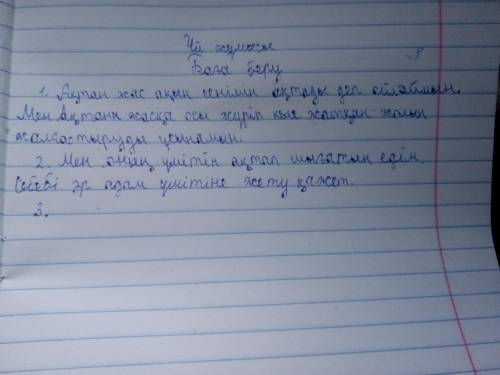 Үй жұмысы
Баға беру
1. Ақпан жас ақын сенімін ақтады деп ойлаймын.
Мен Ақпанн жасқа осы жүріп кыс жатқан жолын
жалғастыруды ұсынамын.
2. Мен оның үмітін ақтап шығатын едім.
Себебі әр адам үмітіне жету қажет.
3.